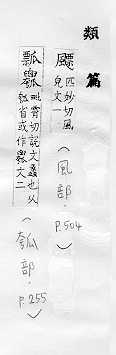 類篇
飄 匹妙切風
皃文一
(風部·P.504)
瓢𤬓 毗霄切說文蠡也从
瓠省或作𤬓文二
(瓠部·P.255)